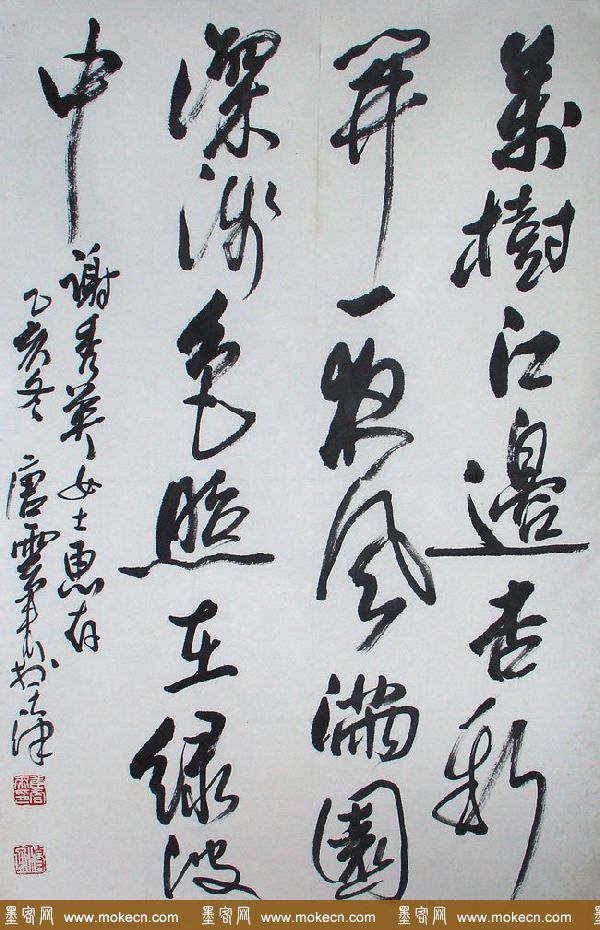 萬樹江邊杏新
開一夜風滿園
深淺色照在緑波
中
謝秀英女士惠存
乙亥冬 唐雲来於天津
墨客网 www.mokecn.com 墨客网 www.mokecn.com 墨客网 www.mokecn.com